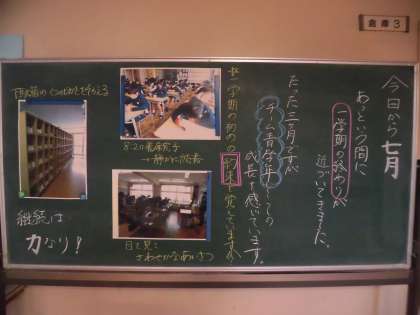 倉庫3
今日から七月
あっという間に
一学期の終わりが
近づいてきました。
たった三ヶ月ですが
チーム青学年としての
成長を感じています。
一学期の初めの約束、覚えていますか
8:20着席完了
→静かに読書
目を見て
さわやかなあいさつ
継続は
力なり！